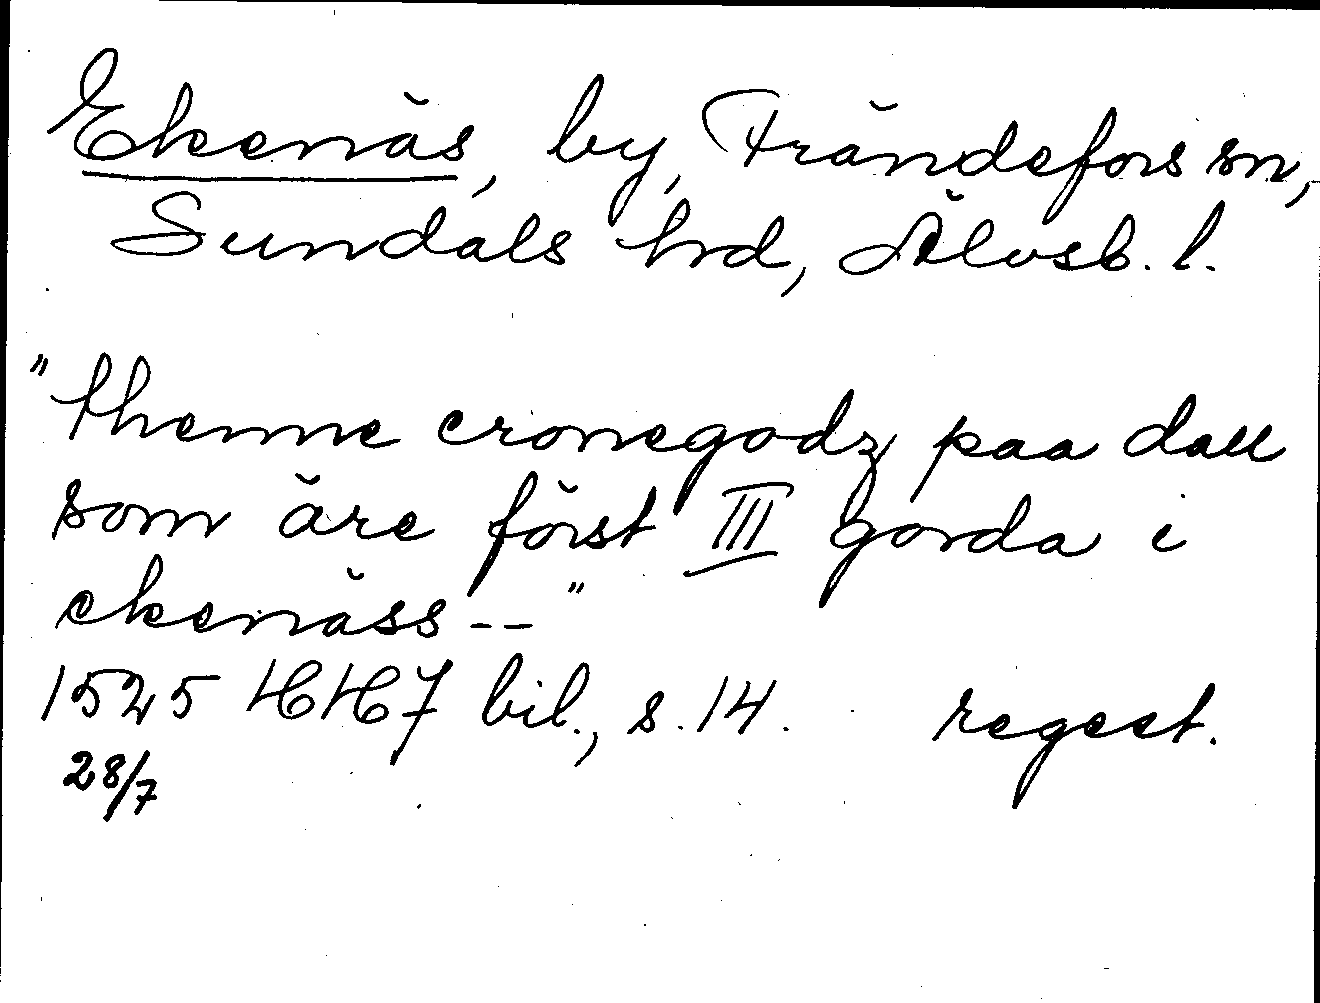 Ekenäs, by, Frändefors sn,
Sundals hrd, Älvsb. l.
"thenne cronegodz paa dall
som äre först III gorda i
ekenäss--"
1525 HH 7 bil., s. 14. regest.
28/7